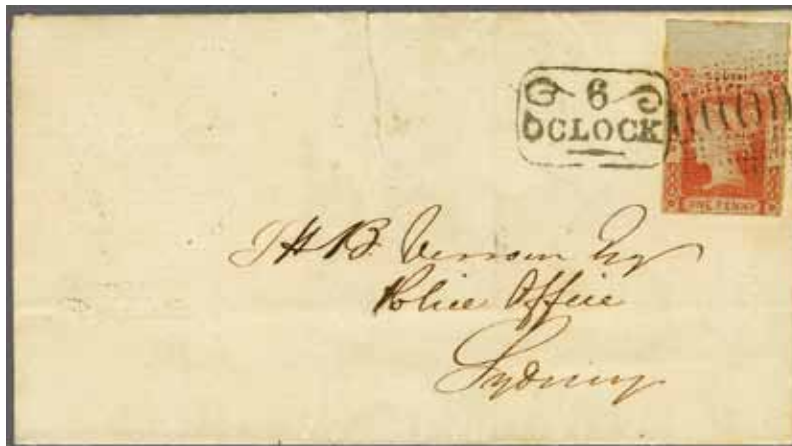 6
OCLOCK
ONE PENNY
J H B. Vernon Esq
Police Office
Sydney